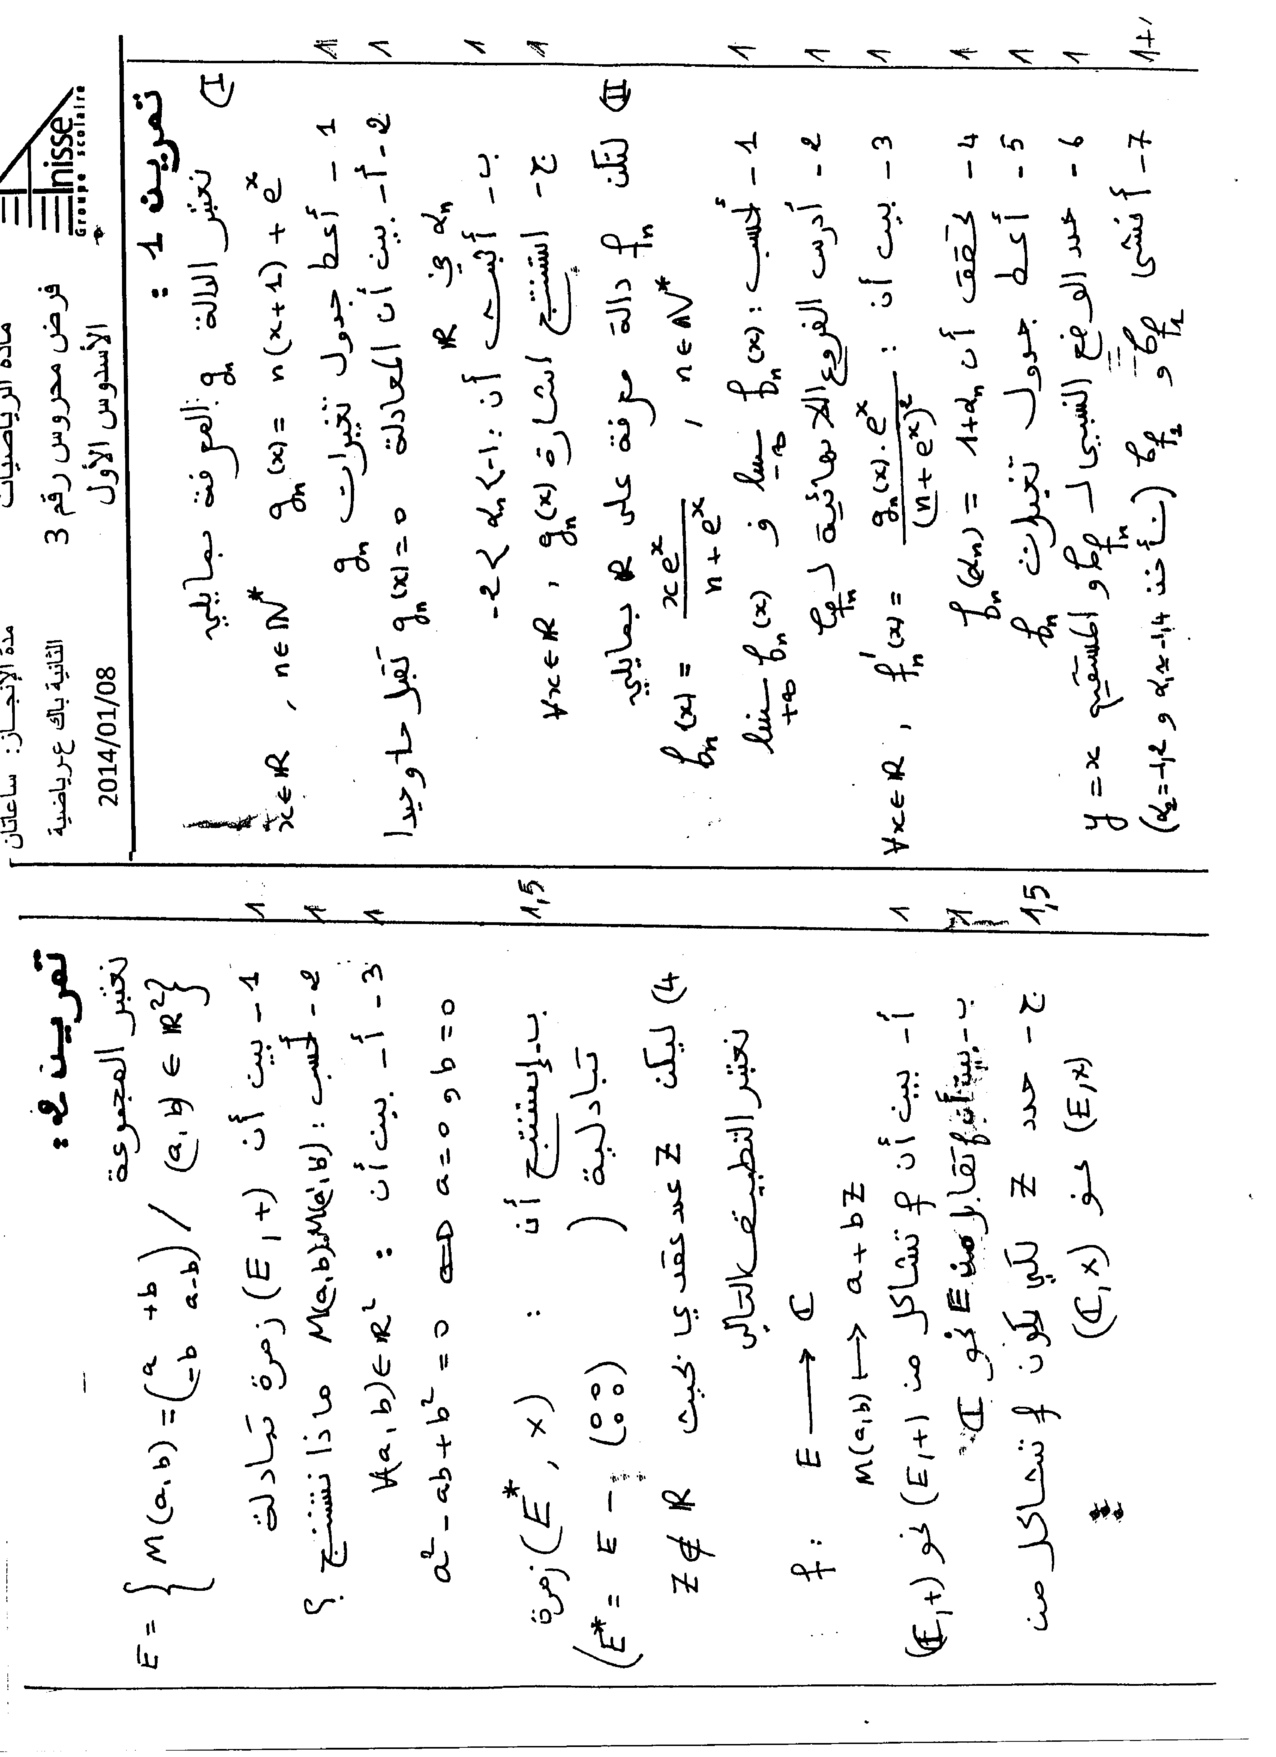 nisse
Groupe scolaire
مادة الرياضيات
فرض محروس رقم 3
الأسدوس الأول
مدة الإنجاز: ساعاتان
الثانية باك ع رياضية
2014/01/08
تمرين 1 :
I) نعتبر الدالة gₙ المعرفة بمايلي
gₙ(x) = n(x+1) + eˣ
x∈ℝ , n∈ℕ*
1 - أعط جدول تغيرات gₙ 1
2 - أ - بين أن المعادلة gₙ(x)=0 تقبل حلا وحيدا 1
αₙ في ℝ
ب - أثبت أن : -2 < αₙ < -1 1
ج - استنتج اشارة gₙ(x) , ∀x∈ℝ 1
II) لتكن fₙ دالة معرفة على ℝ بمايلي
fₙ(x) = xeˣ / (n + eˣ) , n∈ℕ*
1 - أحسب : lim₋∞ fₙ(x) و lim₊∞ fₙ(x) 1
2 - أدرس الفروع اللانهائية لـ 𝒞fₙ 1
3 - بين أن : ∀x∈ℝ , fₙ'(x) = gₙ(x).eˣ / (n + eˣ)² 1
4 - تحقق أن fₙ(αₙ) = 1+αₙ 1
5 - أعط جدول تغيرات fₙ 1
6 - حدد الوضع النسبي لـ 𝒞fₙ و المستقيم y = x 1
7 - أنشئ 𝒞f₁ و 𝒞f₂ (نأخذ α₁≈-1,4 و α₂=-1,2) 1+1
تمرين 2 :
نعتبر المجموعة
E = { M(a,b) = (a +b ; -b a-b) / (a,b) ∈ ℝ² }
1 - بين أن (E,+) زمرة تبادلة 1
2 - أحسب : M(a,b)×M(a',b') ماذا تستنتج ؟ 1
3 - أ - بين أن : ∀(a,b)∈ℝ² 1
a² - ab + b² = 0 ⇔ a=0 و b=0
ب - إستنتج أن : (E*, ×) زمرة 1,5
تبادلية ( E* = E - (0 0 ; 0 0) )
4) ليكن Z عدد عقدي بحيث Z ∉ ℝ
نعتبر التطبيق التالي
f : E ⟶ ℂ
M(a,b) ⟼ a + bZ
أ - بين أن f تشاكل من (E,+) نحو (ℂ,+) 1
ب - بين أن f تقابل من E نحو ℂ 1
ج - حدد Z لكي يكون f تشاكل من 1,5
(E,×) نحو (ℂ,×)